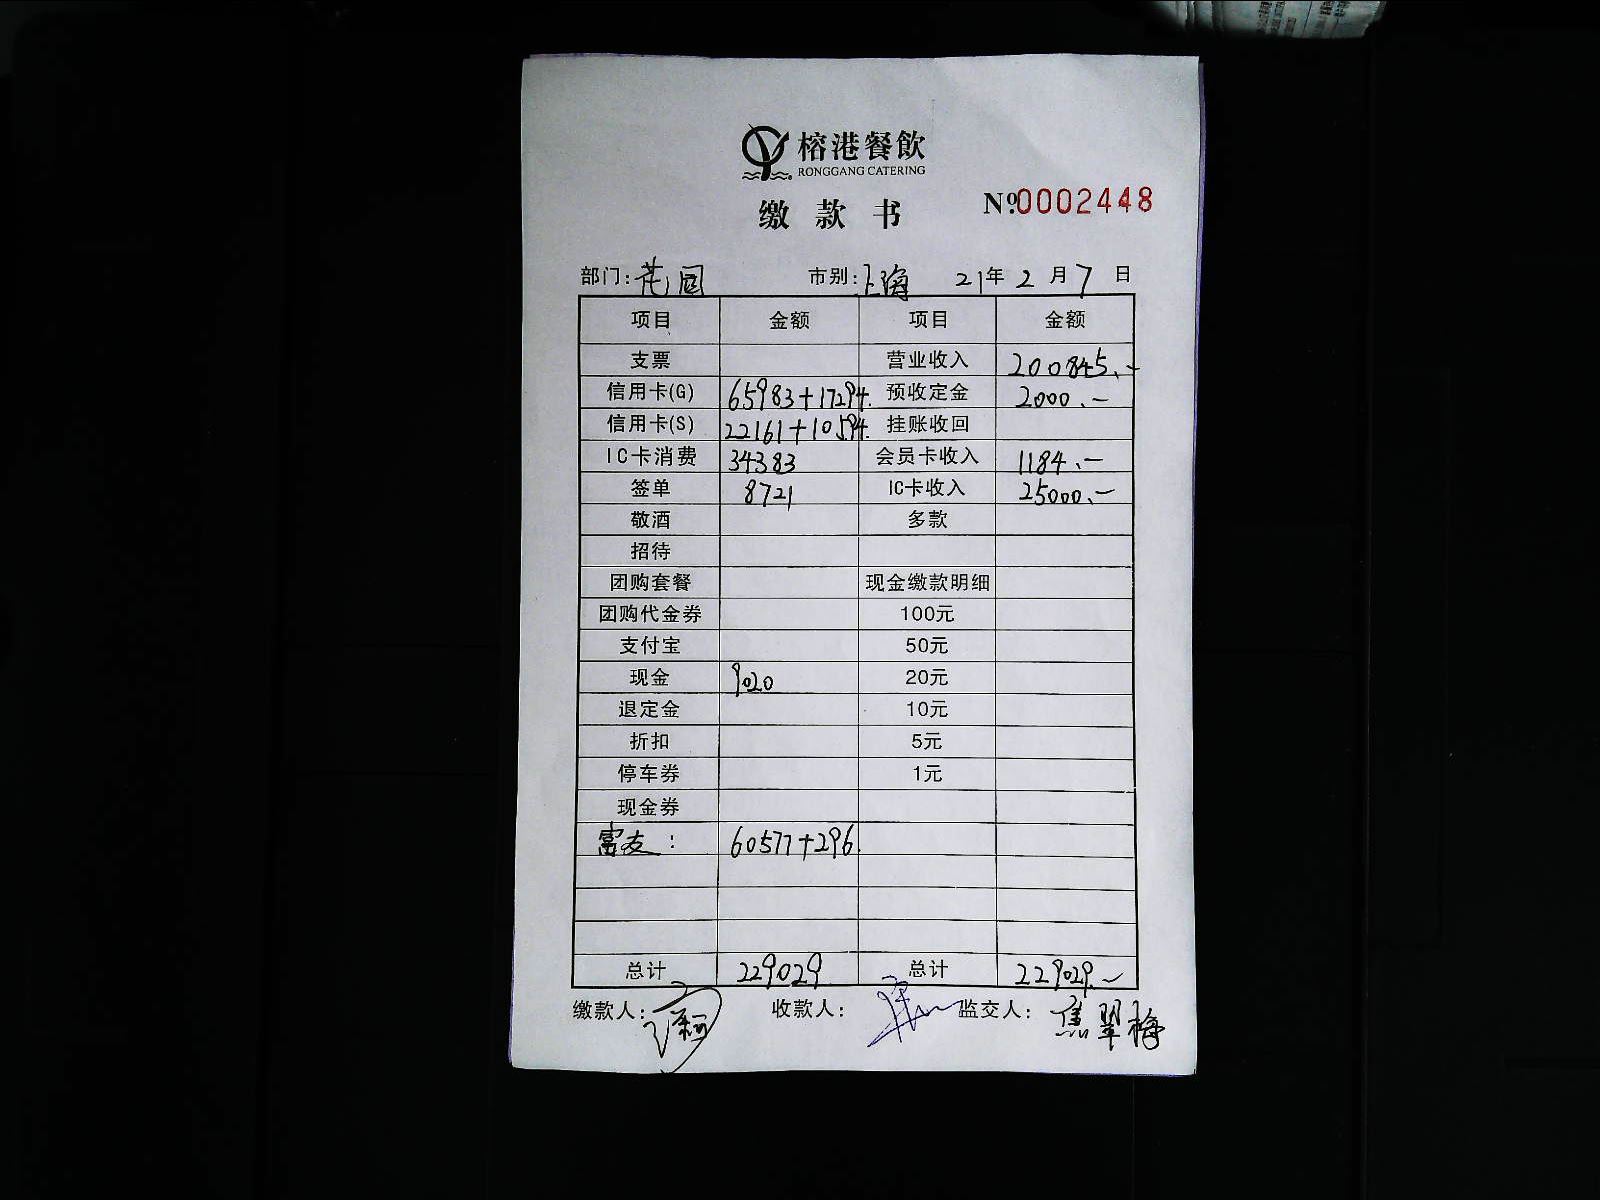 榕港餐飲
RONGGANG CATERING
缴款书 Nº.0002448
部门:花园 市别:上海 21年2月7日
项目 金额 项目 金额
支票 营业收入 200845.-
信用卡(G) 65983+17294. 预收定金 2000.-
信用卡(S) 22161+10594. 挂账收回
IC卡消费 34383 会员卡收入 1184.-
签单 8721 IC卡收入 25000.-
敬酒 多款
招待
团购套餐 现金缴款明细
团购代金券 100元
支付宝 50元
现金 9020 20元
退定金 10元
折扣 5元
停车券 1元
现金券
富友: 60577+296.
总计 229029 总计 229029.-
缴款人: 收款人: 监交人:焦翠梅